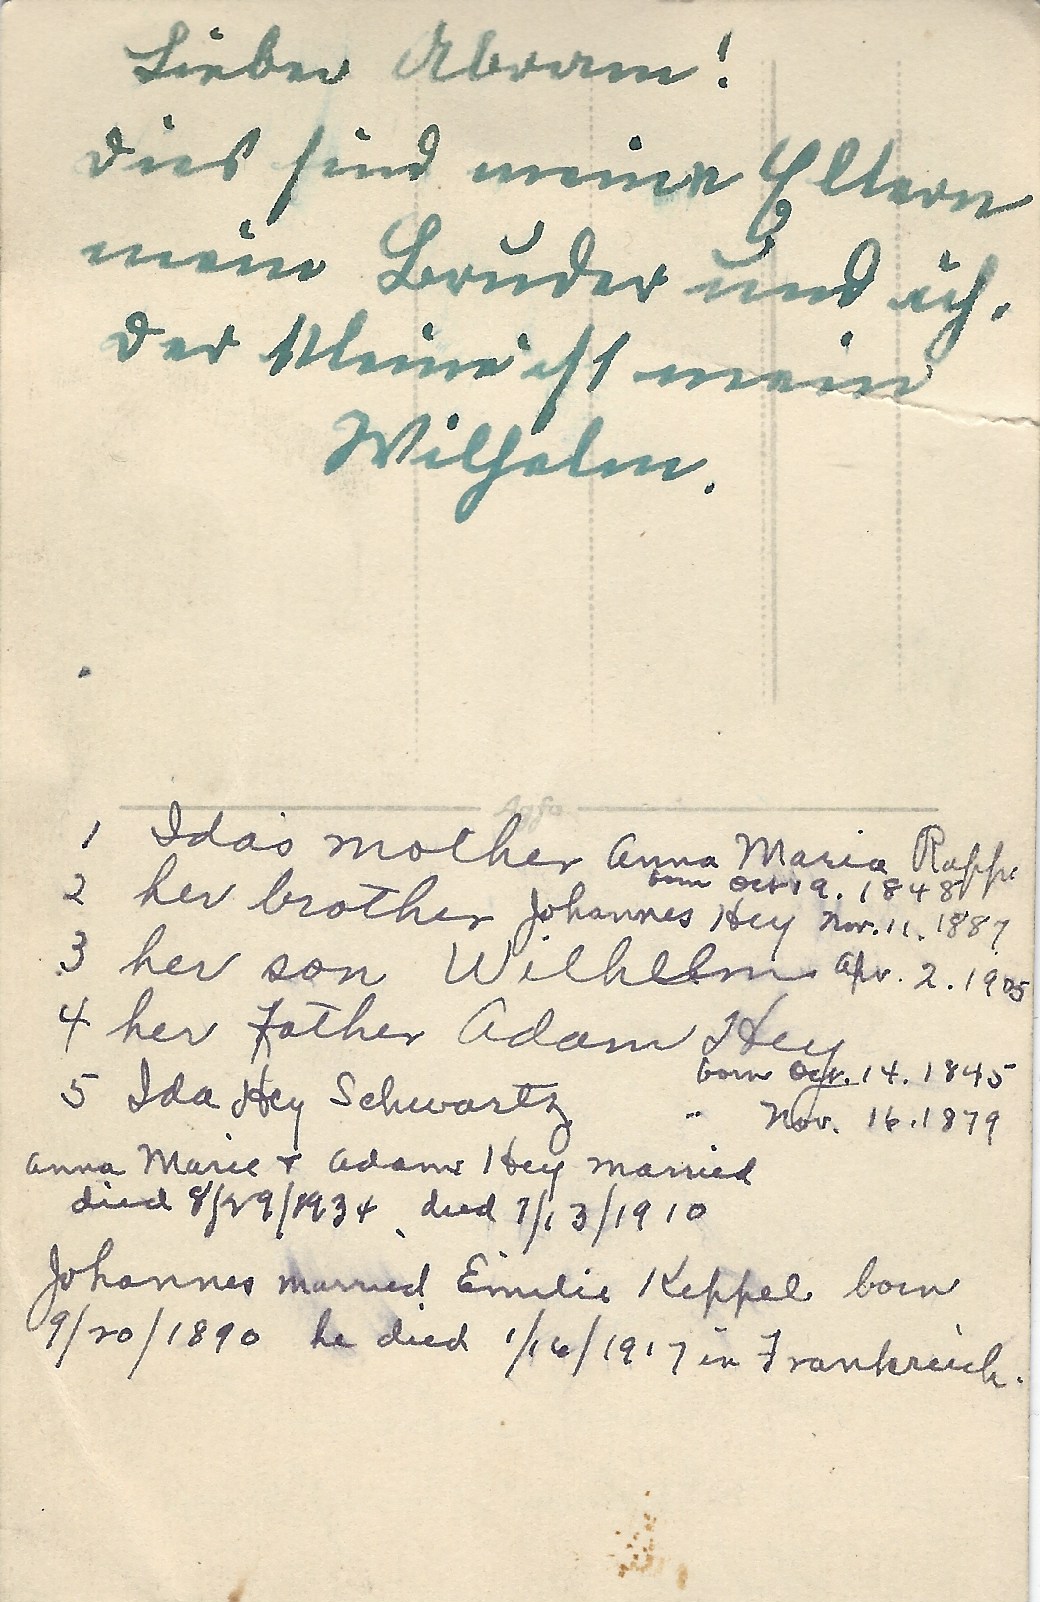 Lieber Abram!
Dies sind meine Eltern
mein Bruder und ich.
Der Kleine ist mein
Wilhelm.
Agfa
1 Ida's mother Anna Maria Rapp
born Oct 19. 1848
2 her brother Johannes Hey Nov. 11. 1887
3 her son Wilhelm Apr. 2. 1905
4 her Father Adam Hey
born 14. 1845
5 Ida Hey Schwartz " Nov. 16. 1879
Anna Marie + Adam Hey married
died 8/29/1934 died 7/13/1910
Johannes married Emilie Keppel born
9/20/1890 he died 1/16/1917 in Frankreich.